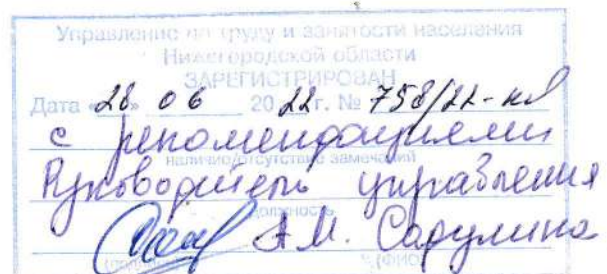 Управление по труду и занятости населения
Нижегородской области
ЗАРЕГИСТРИРОВАН
Дата «28» 06 2022 г. № 758/22-кд
с рекомендациями
наличие/отсутствие замечаний
Руководитель управления
должность
А.М. Садулина
(ФИО)